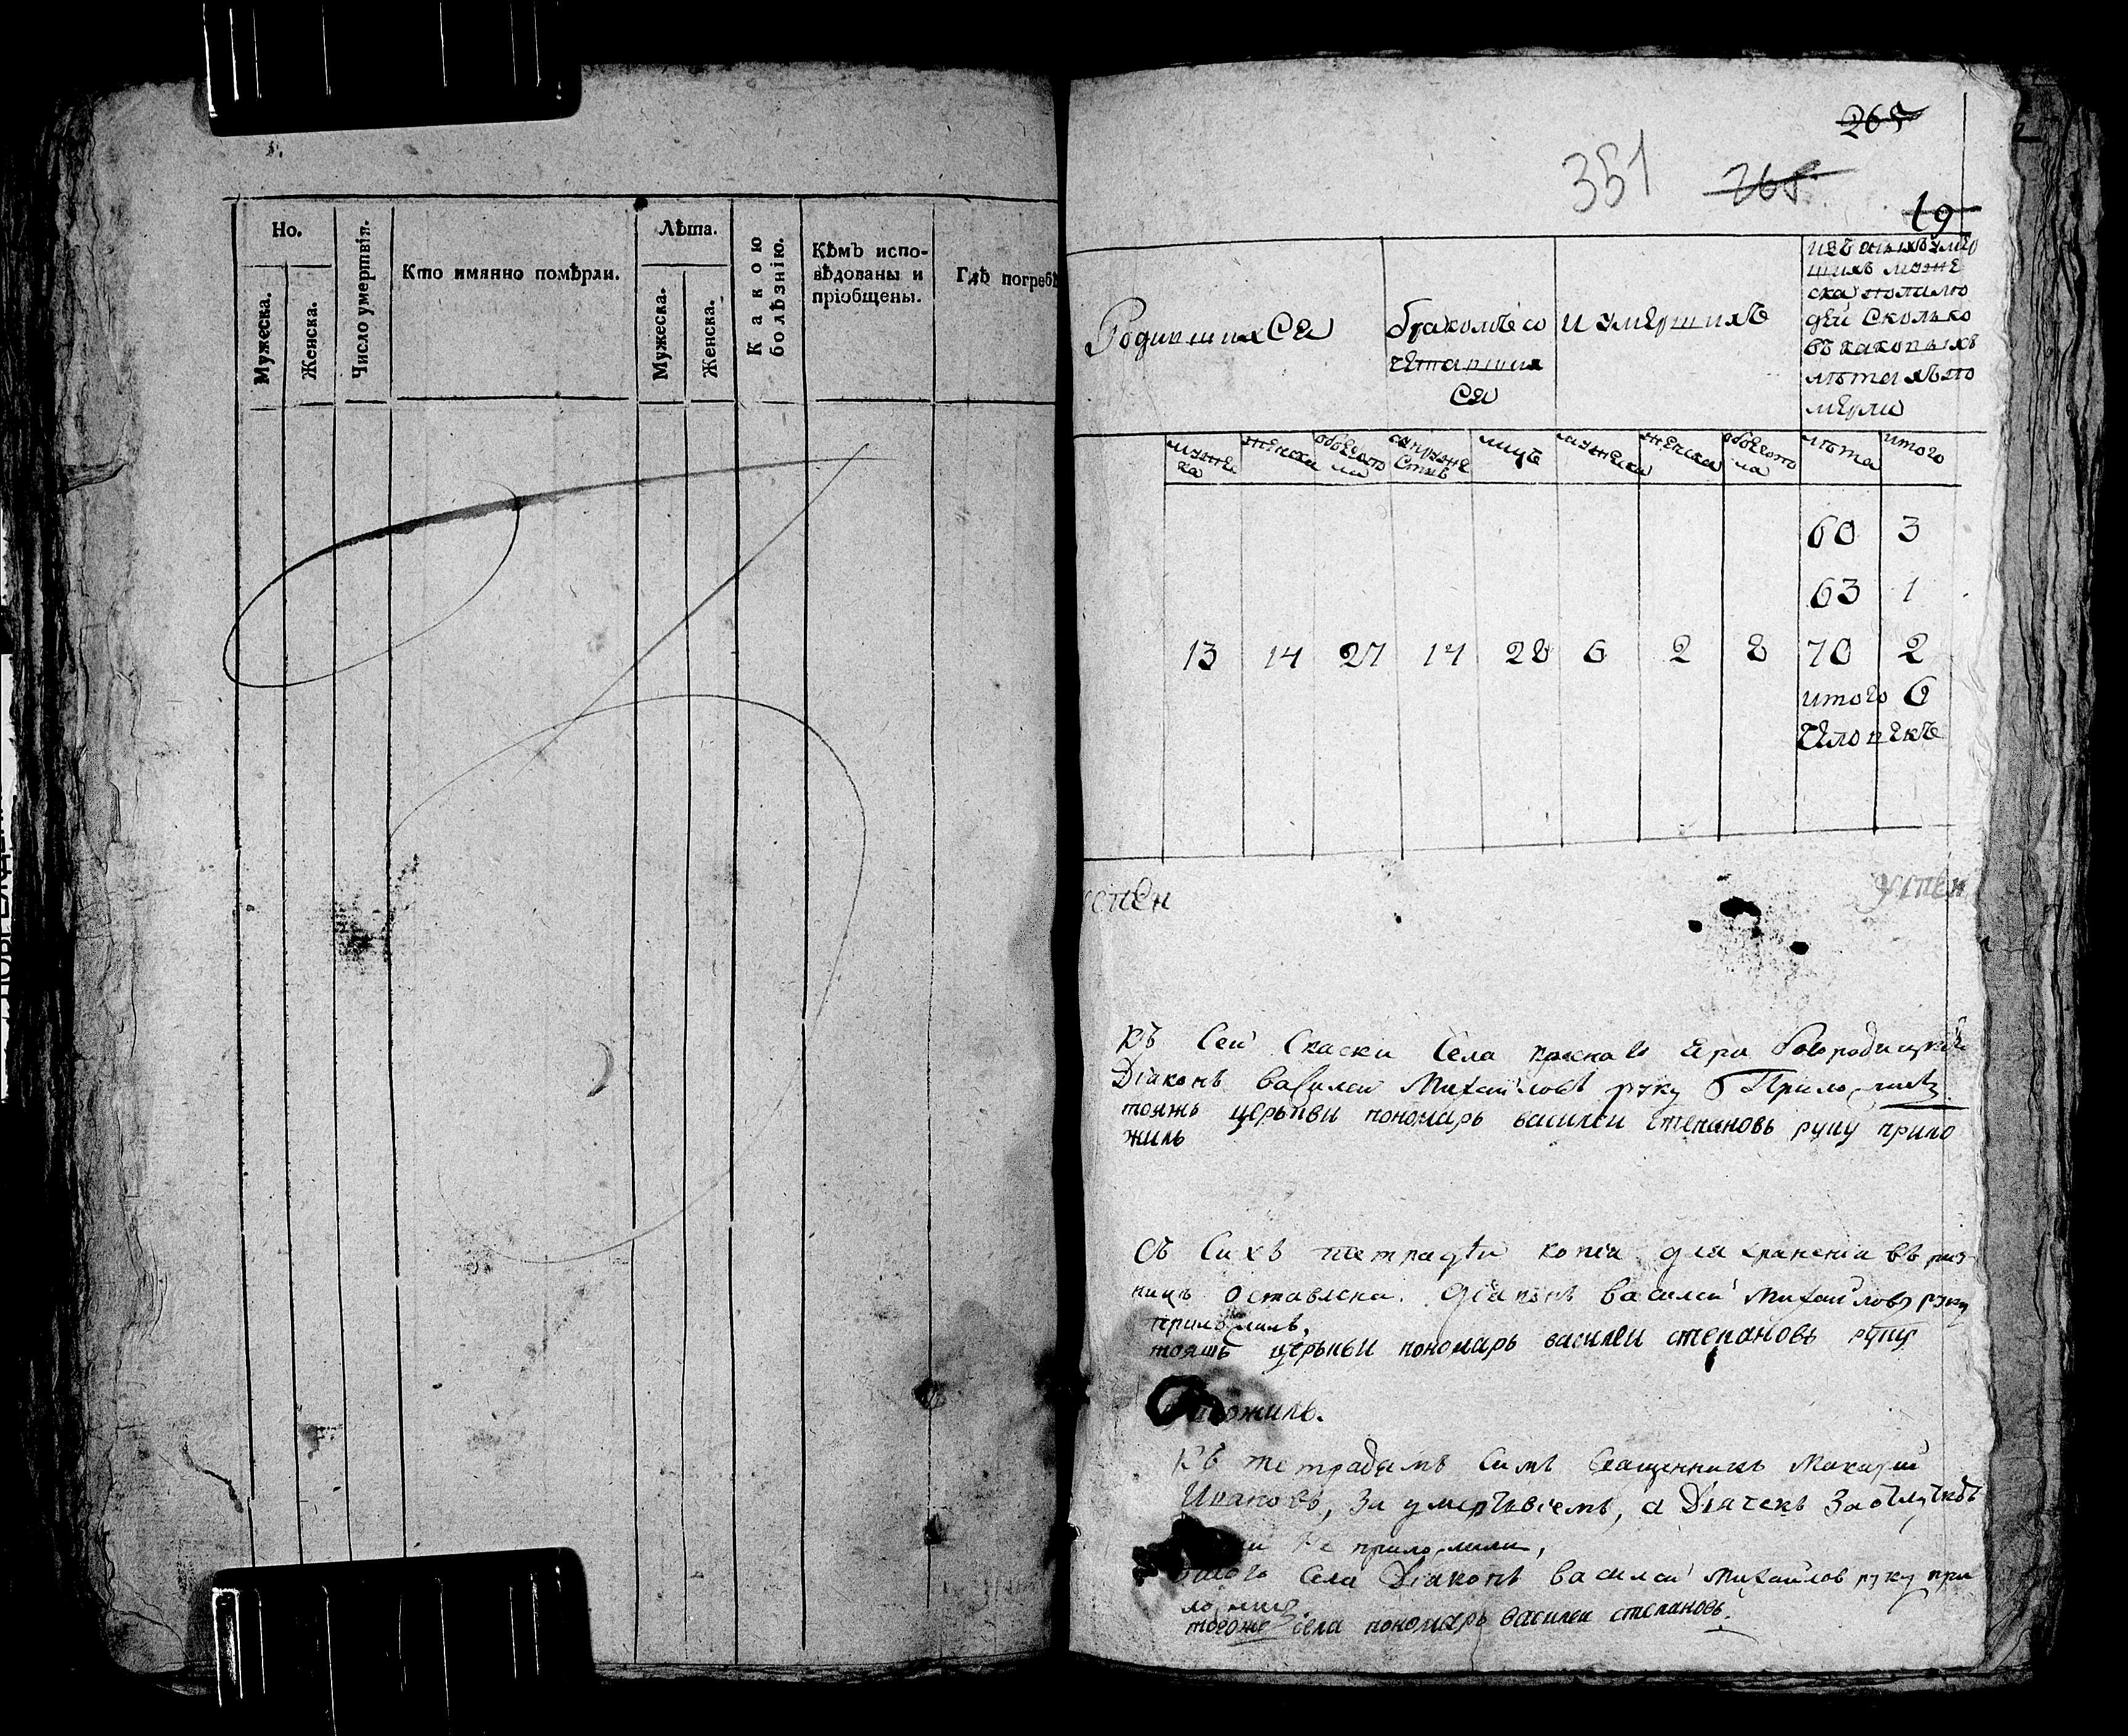 Но.
Мужеска.
Женска.
Число умертвій.
Кто имянно померли.
Лѣта.
Мужеска.
Женска.
Какою болѣзнію.
Кѣмъ испо-
вѣдованы и
пріобщены.
Гдѣ погребе
265
351 265
19
Родившихся
бракомъ со
четавших
ся
и умершихъ
изъ оныхъ умер
шихъ муже
ска полу лю
дей сколько
въ каковыхъ
лѣтахъ по
мерли
муже
ска
женска
обоего по
ла
супруже
ствъ
лицъ
мужеска
женска
обоего по
ла
лѣта
итого
60 3
63 1
13 14 27 14 28 6 2 8 70 2
итого 6
человекъ
успен
успен
Къ сей села Богородицкой
Діаконъ василей Михайловъ руку приложилъ
тояжъ церькви пономарь василеи степановъ руку прило
жилъ
Съ сихъ тетрадѣи копіа для храненіа въ риз
ницѣ оставлена. Діаконъ василей Михайловъ руку
приложилъ,
тояжъ церькви пономарь василеи степановъ руку
приложилъ.
Къ тетрадямъ симъ Священникъ Макарій
Ивановъ, за умертвіемъ, а Діячекъ за отлучкою
не приложили,
села Діаконъ василей Михайловъ руку при
ложилъ.
тогоже села пономарь василеи степановъ.